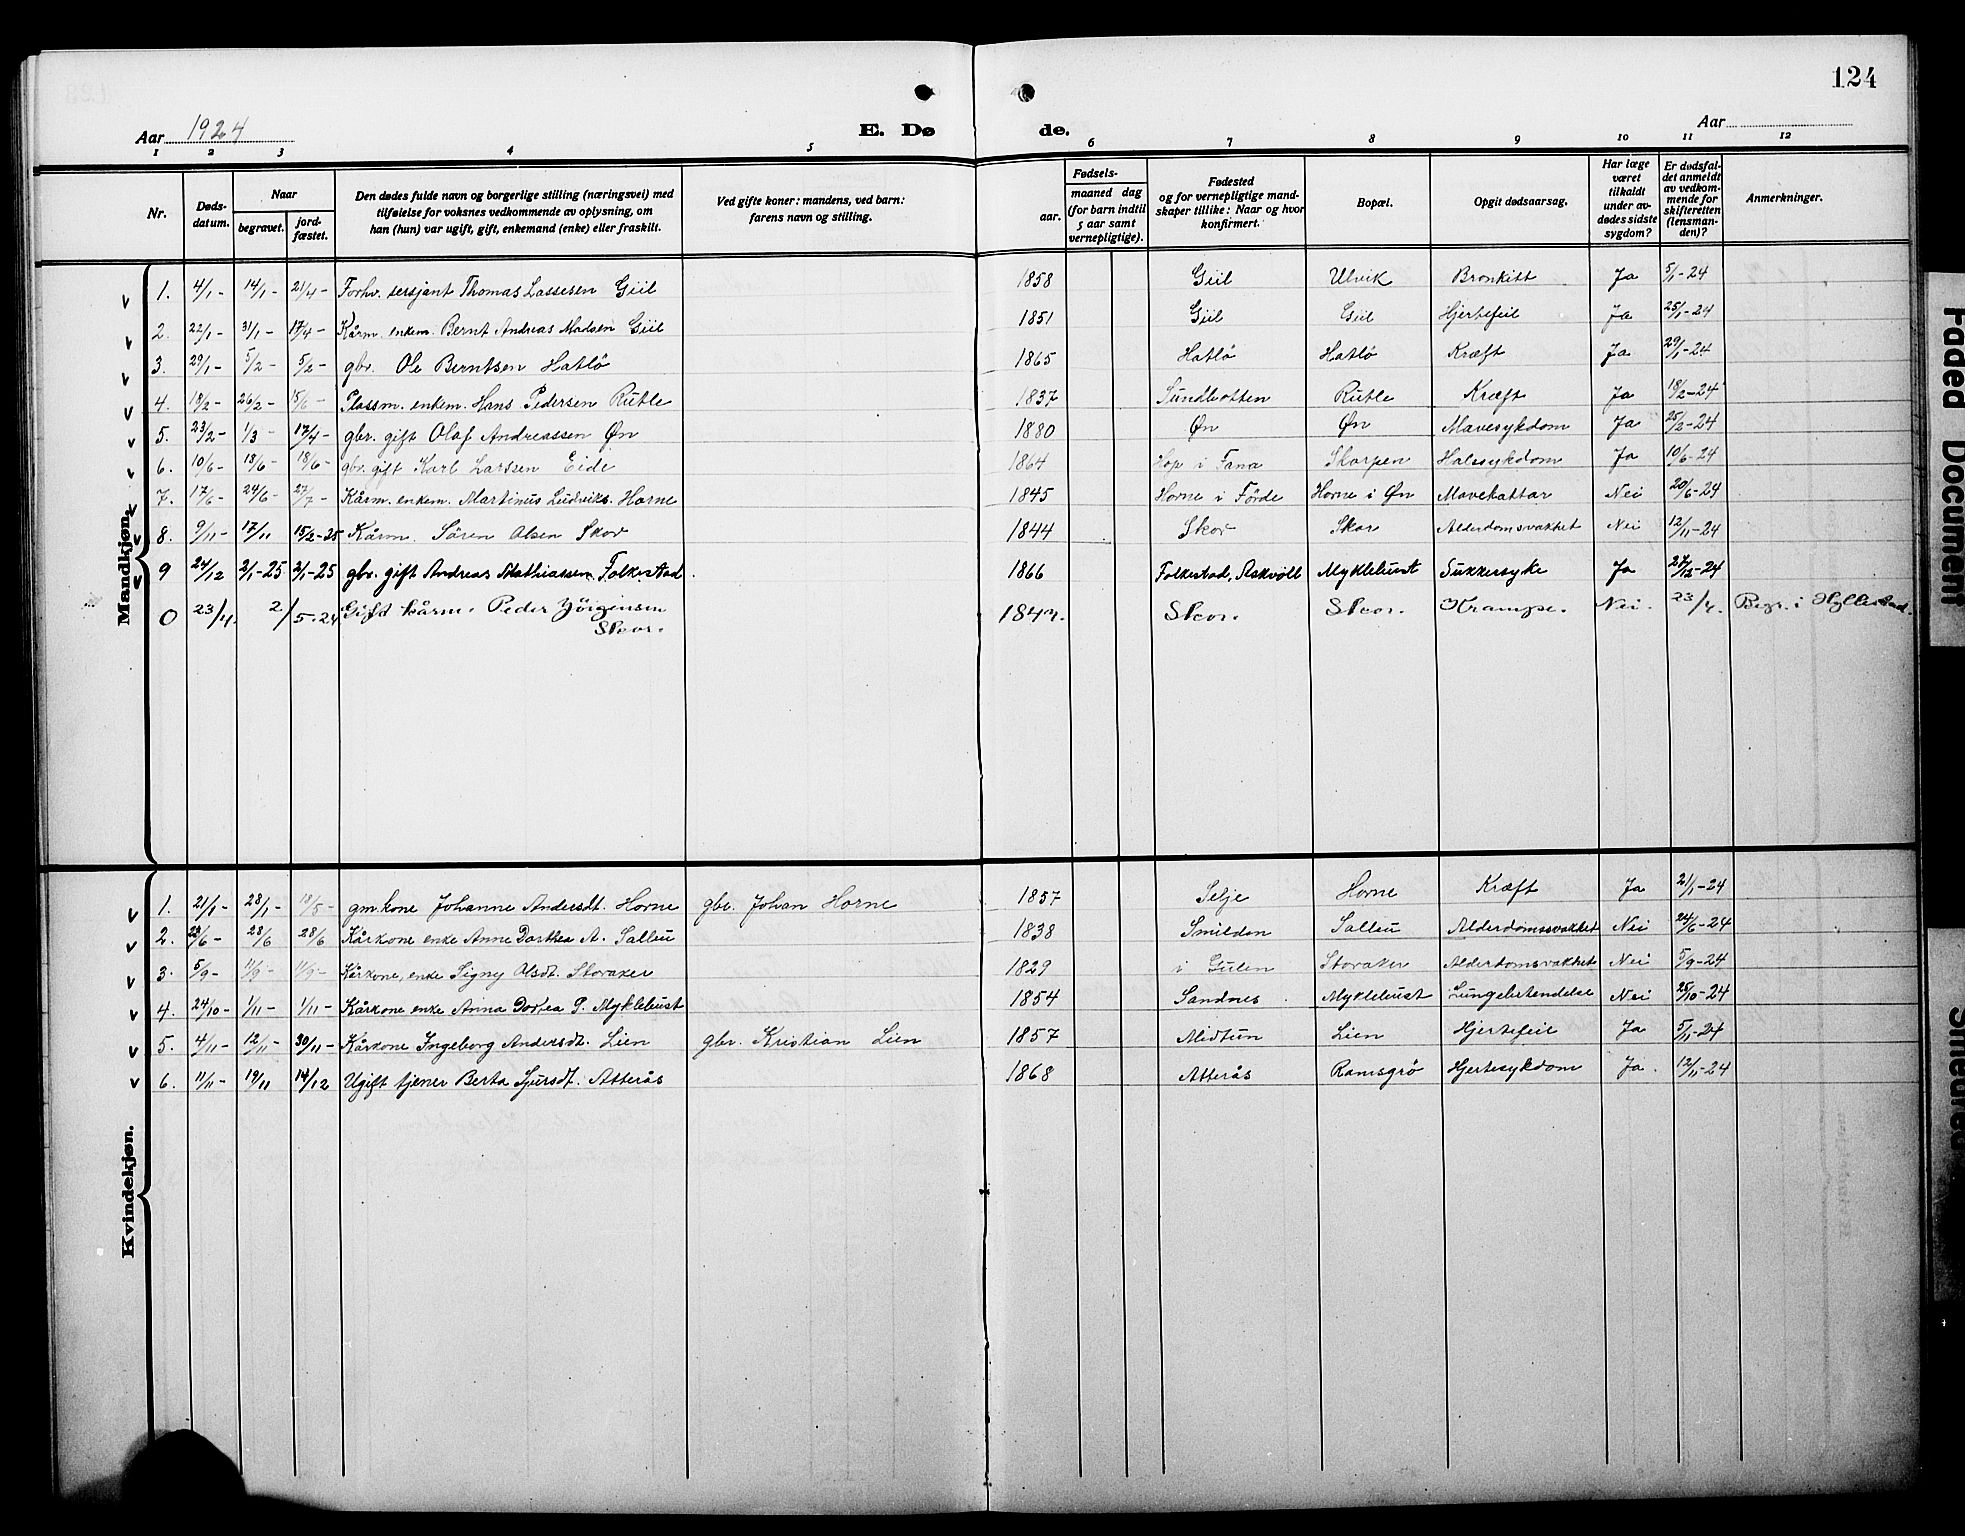 124
Aar 1924
E. Dø de.
Aar
1 2 3 4 5 6 7 8 9 10 11 12
Nr. Døds-datum. Naar begravet. jord-fæstet. Den dødes fulde navn og borgerlige stilling (næringsvei) med tilføielse for voksnes vedkommende av oplysning, om han (hun) var ugift, gift, enkemand (enke) eller fraskilt. Ved gifte koner: mandens, ved barn: farens navn og stilling. Fødsels- aar. maaned dag (for barn indtil 5 aar samt vernepligtige). Fødested og for vernepligtige mand-skaper tillike: Naar og hvor konfirmert. Bopæl. Opgit dødsaarsag. Har læge været tilkaldt under av-dødes sidste sygdom? Er dødsfal-det anmeldt av vedkom-mende for skifteretten (lensman-den)? Anmerkninger.
Mandkjøn.
1. 4/1- 14/1- 21/4- Forhv. sersjant Thomas Lassesen Giil 1858 Giil Ulvik Bronkitt Ja 5/1-24
2. 22/1- 31/1- 17/4- Kårm. enkem. Bernt Andreas Madsen Giil 1851 Giil Giil Hjertefeil Ja 25/1-24
3. 29/1- 5/2- 5/2- gbr. Ole Berntsen Hatlö 1865 Hatlö Hatlö Kræft Ja 29/1-24
4. 18/2- 26/2- 15/6- Plassm. enkem. Hans Pedersen Rutle 1837 Sundbotten Rutle Kræft Ja 18/2-24
5. 23/2- 1/3- 17/4- gbr. gift Olaf Andreassen Øn 1880 Øn Øn Mavesykdom Ja 25/2-24
6. 10/6- 18/6- 18/6- gbr. gift Karl Larssen Eide 1864 Hop i Fana Skorpen Halssykdom Ja 10/6-24
7. 17/6- 24/6- 27/7- Kårm. enkem. Martinus Ludviks. Horne 1845 Horne i Förde Horne i Øn Mavekattar Nei 20/6-24
8. 9/11- 17/11 15/2-25 Kårm. Sören Olsen Skor 1844 Skor Skor Alderdomsvakhet Nei 12/11-24
9 24/12 2/1-25 2/1-25 gbr. gift Andreas Mathiassen Folkestad. 1866 Folkestad, Askvöll Myklebust Sukkersyke Ja 27/12-24
0 23/4. 2/5-24 Gift kårm. Peder Jörgensen Skor. Skor. Skor. Krampe. Nei. 23/4. Begr. i Hyllestad.
Kvindekjøn.
1. 21/1- 28/1- 18/5- gm.kone Johanne Andersdt. Horne gbr. Johan Horne 1857 Selje Horne Kræft Ja 21/1-24
2. 28/6 28/6 Kårkone enke Anne Dorthea A. Salleu 1838 Smildon Salleu Alderdomssvakhet Nei 24/6-24
3. 5/9- 11/9- 11/9- Kårkone, enke Signy Olsdt. Storaker 1829 i Gulen Storaker Alderdomsvakhet Nei 5/9-24
4. 24/10- 1/11- 1/11- Kårkone enke Anna Dortea P. Myklebust 1854 Sandnes Myklebust Lungebetendelse Nei 25/10-24
5. 4/11- 12/11- 30/11- Kårkone Ingeborg Andersdt. Lien gbr. Kristian Lien 1857 Midtun Lien Hjertefeil Ja 5/11-24
6. 11/11- 19/11 14/12 Ugift tjener Berta Sjursdt. Atterås 1868 Atterås Ramsgrö Hjertesykdom Ja. 12/11-24
Faded Document